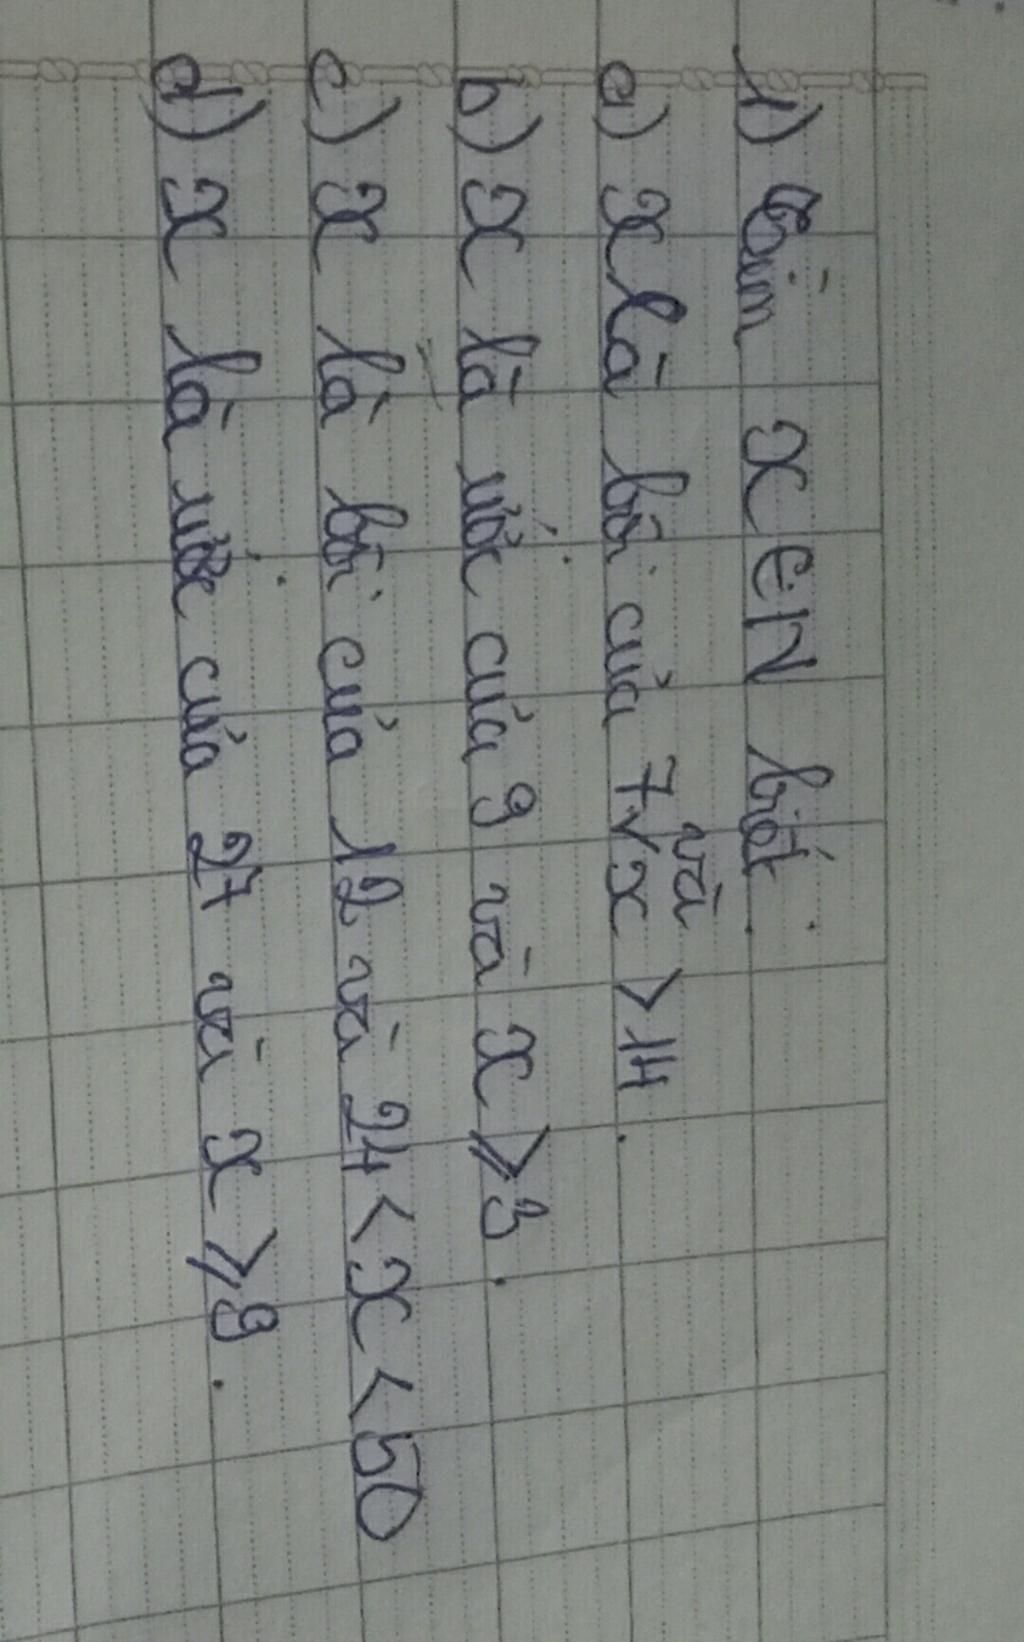 1) Tìm x ∈ N biết:
a) x là bội của 7 và x > 14.
b) x là ước của 9 và x ⩾ 3.
c) x là bội của 12 và 24 < x < 50
d) x là ước của 27 và x ⩾ 9.